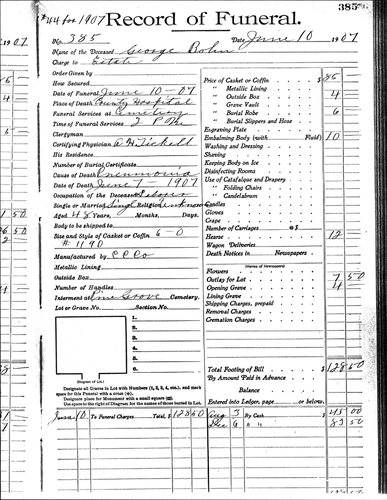 385
#44 for 1907 Record of Funeral.
No. 385 Date June 10 1907
Name of the Deceased George Bohn
Charge to Estate
Order Given by
How Secured
Date of Funeral June 10-07
Place of Death County Hospital
Funeral Services at Cemetery
Time of Funeral Services 2 P.M.
Clergyman
Certifying Physician
His Residence
Number of Burial Certificate
Cause of Death Pneumonia
Date of Death June 7-1907
Occupation of the Deceased Labor
Single or Married Single Religion Unknown
Aged 48 Years, Months, Days.
Body to be shipped to
Size and Style of Casket or Coffin 6-0
#1190
Manufactured by C C Co
Metallic Lining
Outside Box
Number of Handles
Interment at Pine Grove Cemetery.
Lot or Grave No. Section No.
1.
2.
3.
4.
5.
6.
(Diagram of Lot.)
Designate all Graves in Lot with Numbers (1, 2, 3, 4, etc.), and mark
space for this Funeral with a cross (+).
Designate place for Monument with a small square (□).
Use space to the right of Diagram for the names of those buried in Lot.
Price of Casket or Coffin $ 85
" Metallic Lining
" Outside Box 4
" Grave Vault
" Burial Robe 6
" Burial Slippers and Hose
Engraving Plate
Embalming Body (with Fluid) 10
Washing and Dressing
Shaving
Keeping Body on Ice
Disinfecting Rooms
Use of Catafalque and Drapery
" Folding Chairs
" Candelabrum
Candles
Gloves
Crape
Number of Carriages @ $
Hearse 12
Wagon Deliveries
Death Notices in Newspapers
(Names of Newspapers)
Flowers
Outlay for Lot 7 50
Opening Grave 4
Lining Grave
Shipping Charges, prepaid
Removal Charges
Cremation Charges
Total Footing of Bill $ 128 50
By Amount Paid in Advance
Balance
Entered into Ledger, page or below.
June 10 To Funeral Charges Total, $ 128 50
Aug 3 By Cash $ 45 00
Dec 6 " " 83 50